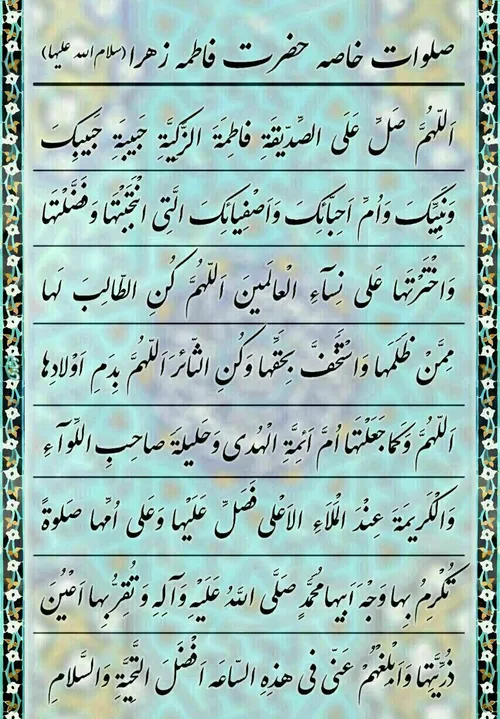 صلوات خاصه حضرت فاطمه زهرا (سلام الله علیها)
اَللّهُمَّ صَلِّ عَلَی الصِّدّیقَةِ فاطِمَةَ الزَکِیَّةِ حَبیبَةِ حَبیبِکَ
وَنَبِیِّکَ وَاُمِّ اَحِبّآئِکَ وَاَصْفِیائِکَ الَّتِی انْتَجَبْتَها وَفَضَّلْتَها
وَاخْتَرْتَها عَلی نِسآءِ الْعالَمینَ اَللّهُمَّ کُنِ الطّالِبَ لَها
مِمَّنْ ظَلَمَها وَاسْتَخَفَّ بِحَقِّها وَکُنِ الثّائِرَ اَللّهُمَّ بِدَمِ اَوْلادِها
اَللّهُمَّ وَکَما جَعَلْتَها اُمَّ اَئِمَّةِ الْهُدی وَحَلیلَةَ صاحِبِ اللِّوآءِ
وَالْکَریمَةَ عِنْدَ الْمَلَاءِ الاَعْلی فَصَلِّ عَلَیْها وَعَلی اُمِّها صَلوةً
تُکْرِمُ بِها وَجْهَ اَبیها مُحَمَّدٍ صَلَّی اللّهُ عَلَیْهِ وَآلِهِ وَتُقِرُّ بِها اَعْیُنَ
ذُرِّیَّتِها وَاَبْلِغْهُمْ عَنّی فی هذِهِ السّاعَه اَفْضَلَ التَّحِیَّةِ وَالسَّلامِ